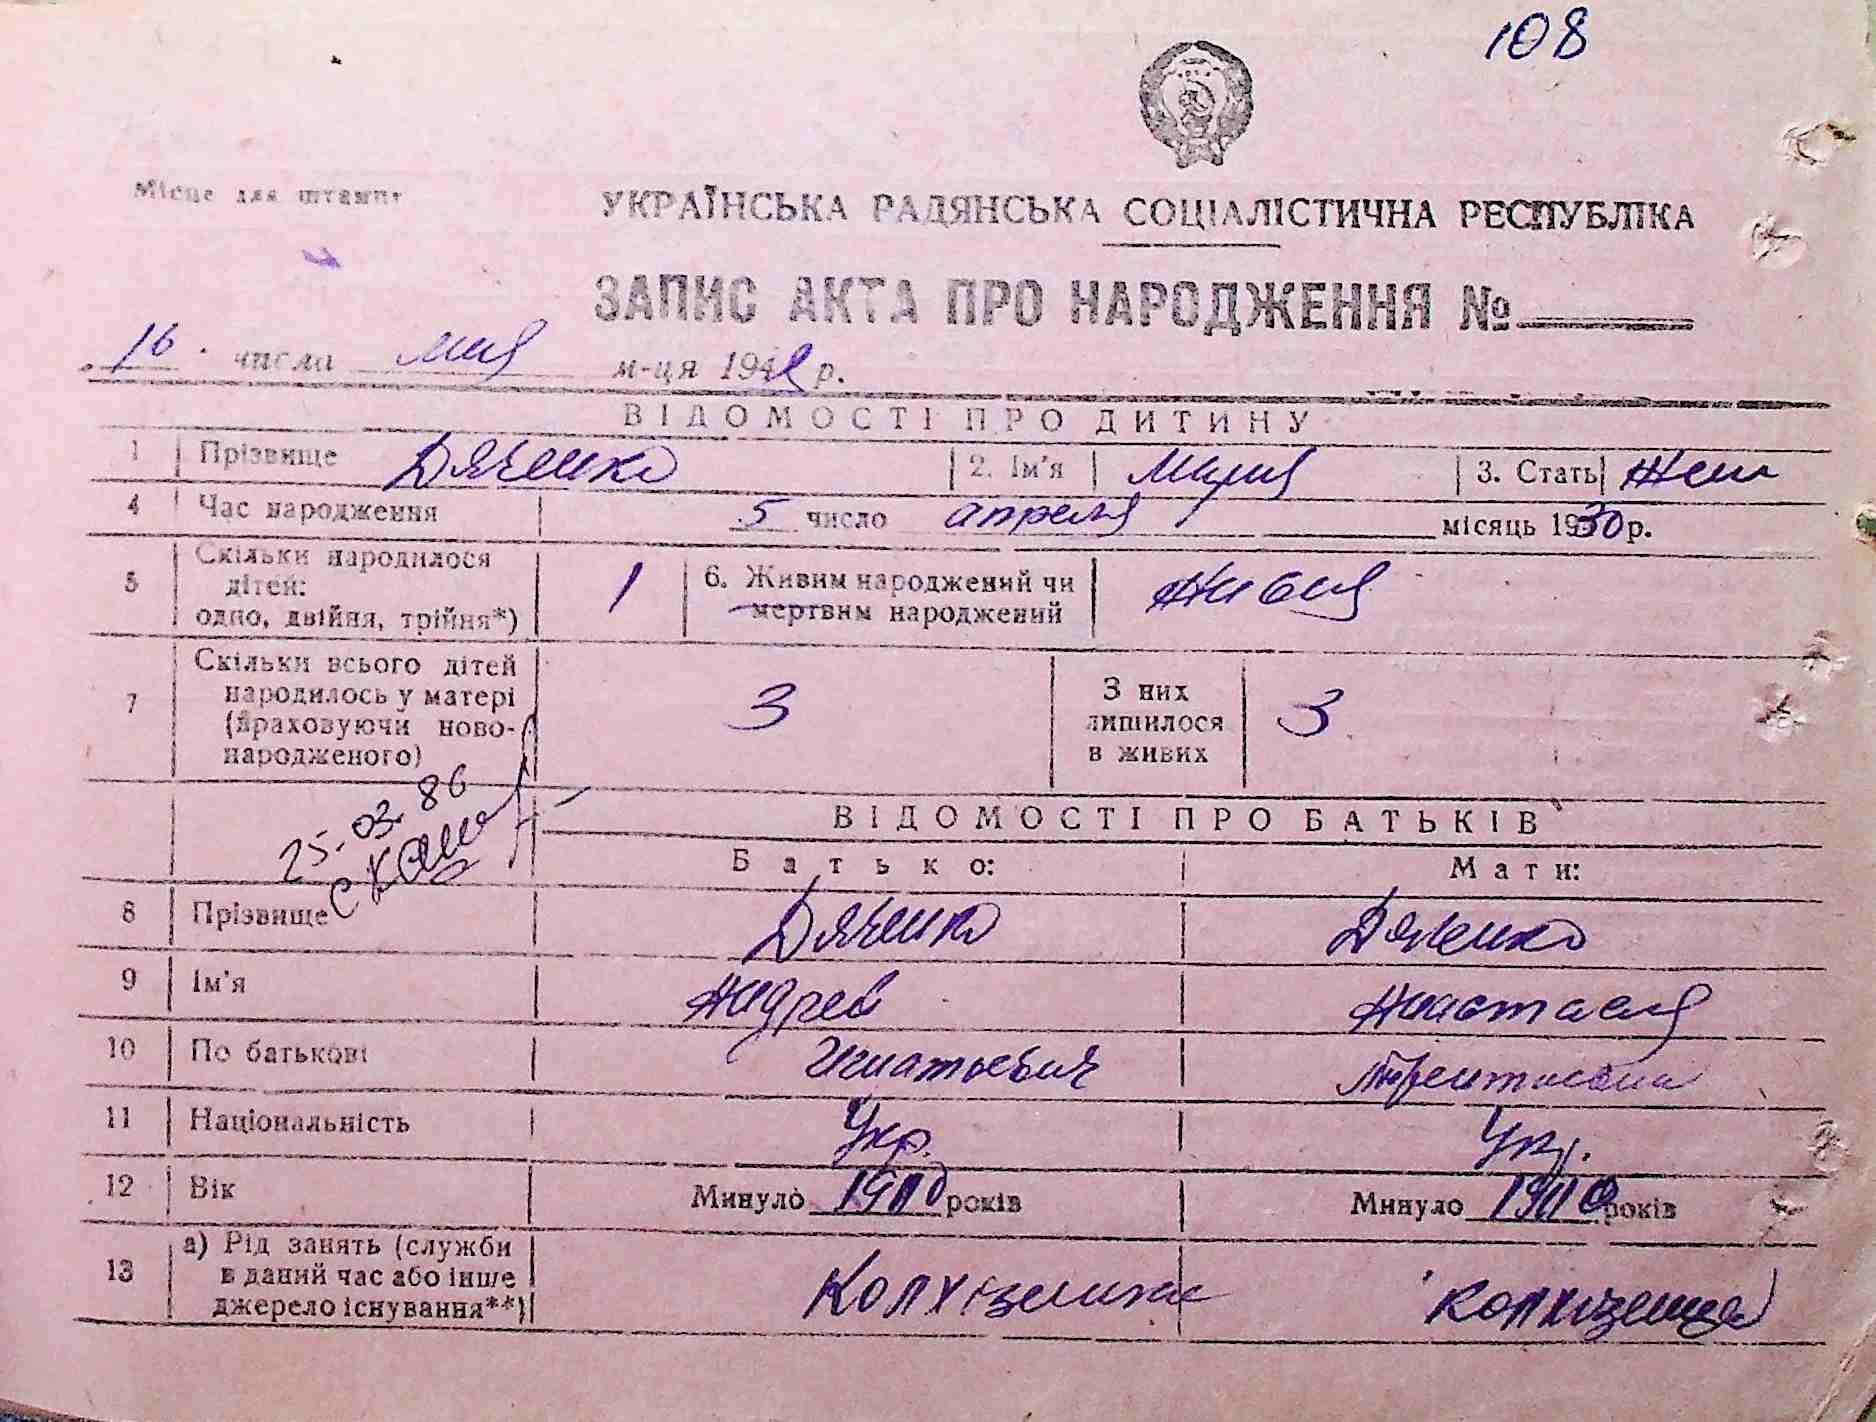 108
Місце для штампу
УКРАЇНСЬКА РАДЯНСЬКА СОЦІАЛІСТИЧНА РЕСПУБЛІКА
ЗАПИС АКТА ПРО НАРОДЖЕННЯ №
16. числа мая м-ця 194 р.
ВІДОМОСТІ ПРО ДИТИНУ
1 Прізвище Дяченко 2. Ім'я Мария 3. Стать Жен
4 Час народження 5 число апреля місяць 1930 р.
5 Скільки народилося дітей: одно, двійня, трійня*) 1 6. Живим народжений чи мертвим народжений живая
7 Скільки всього дітей народилось у матері (враховуючи новонародженого) 3 З них лишилося в живих 3
25-03.86
ВІДОМОСТІ ПРО БАТЬКІВ
Батько: Мати:
8 Прізвище Дяченко Дяченко
9 Ім'я Андрей Анастасия
10 По батькові Игнатьевич
11 Національність Укр. Укр.
12 Вік Минуло 1900 років Минуло років
13 а) Рід занять (служби в даний час або інше джерело існування**) Колхізник колхізница